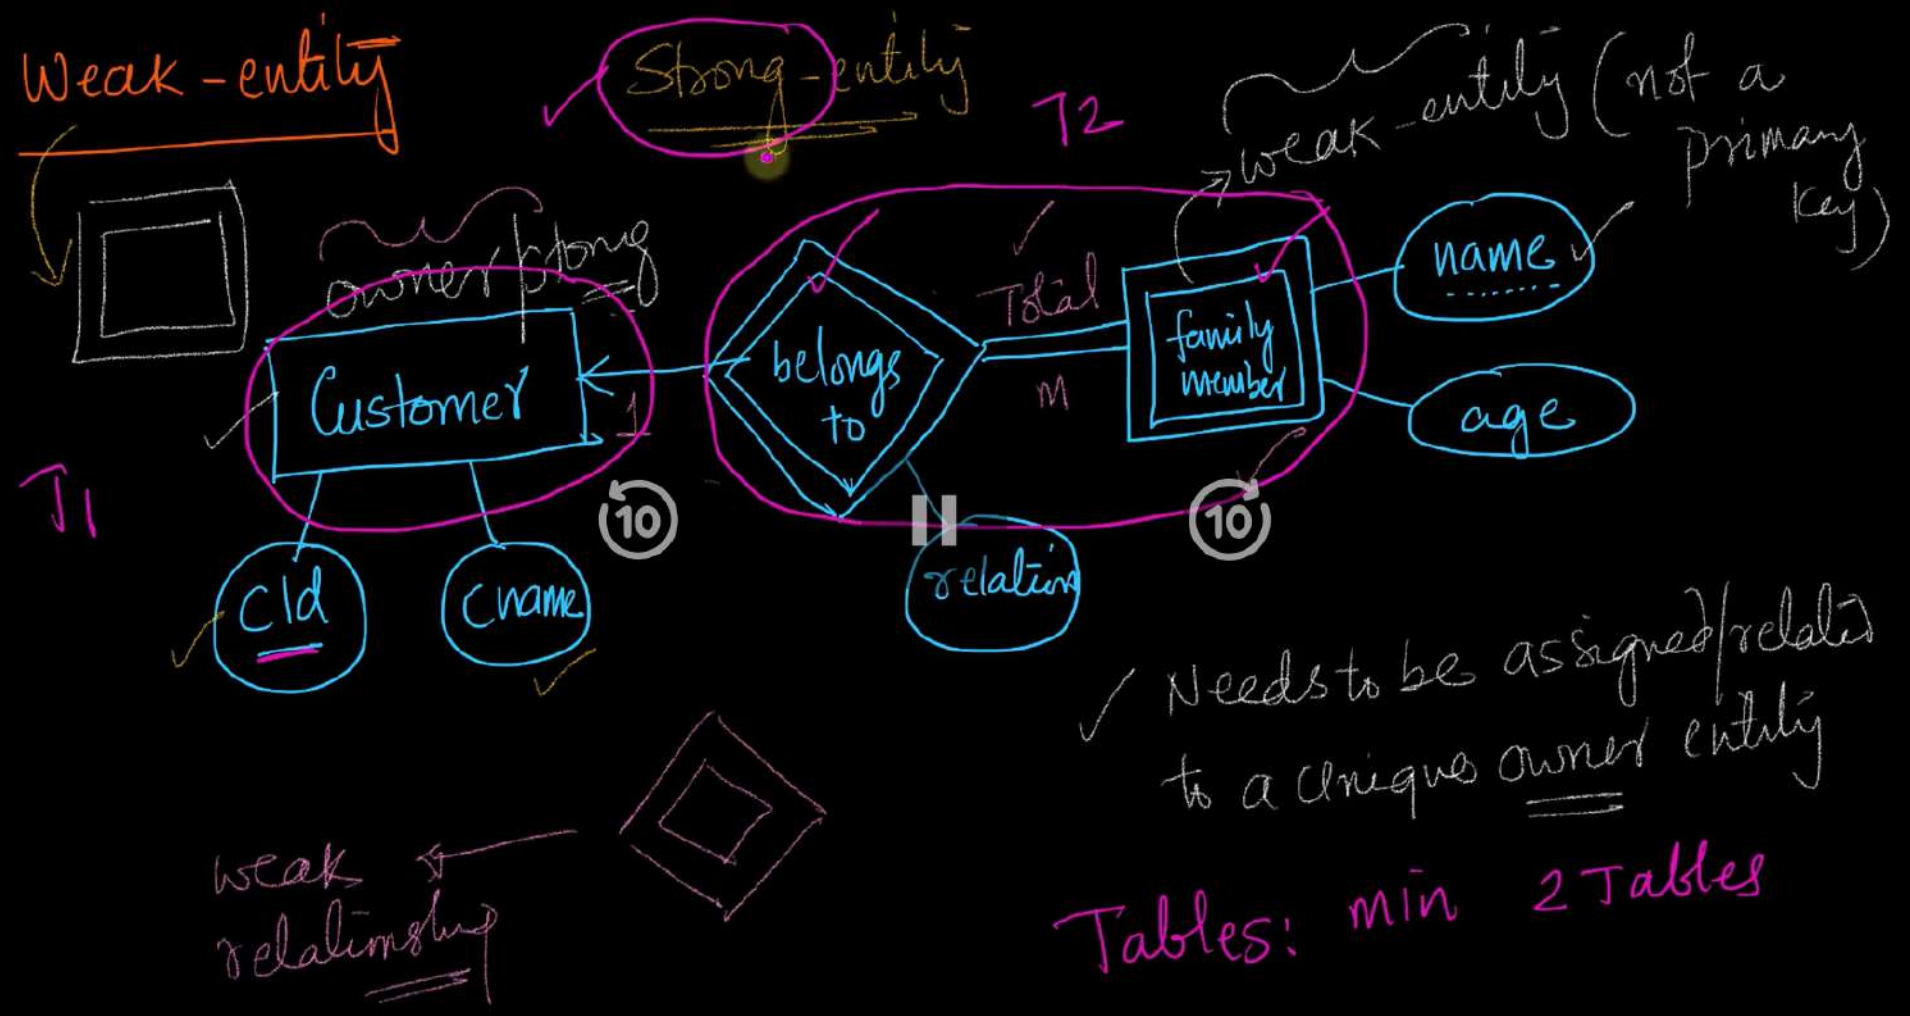 Weak-entity
Strong-entity
T2
weak-entity (not a
primary
key)
owner/strong
Total
name
Customer
1
belongs
to
M
family
member
age
T1
10
10
cId
cname
relation
Needs to be assigned/related
to a unique owner entity
weak
relationship
Tables: min 2 Tables